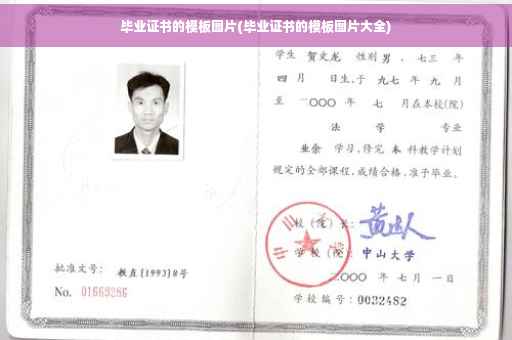 毕业证书的模板图片(毕业证书的模板图片大全)
学生 贺文龙 性别 男 、七三 年
四 月 日生,于 九七 年 九 月
至 二〇〇〇 年 七 月在本校(院)
法 学 专业
业余 学习,修完 本 科教学计划
规定的全部课程,成绩合格,准予毕业。
校(院)长:
学校(院): 中山大学
二〇〇〇 年 七 月 一 日
学校编号: 0032482
批准文号: 教直[1993]8号
No. 01663286
中山大